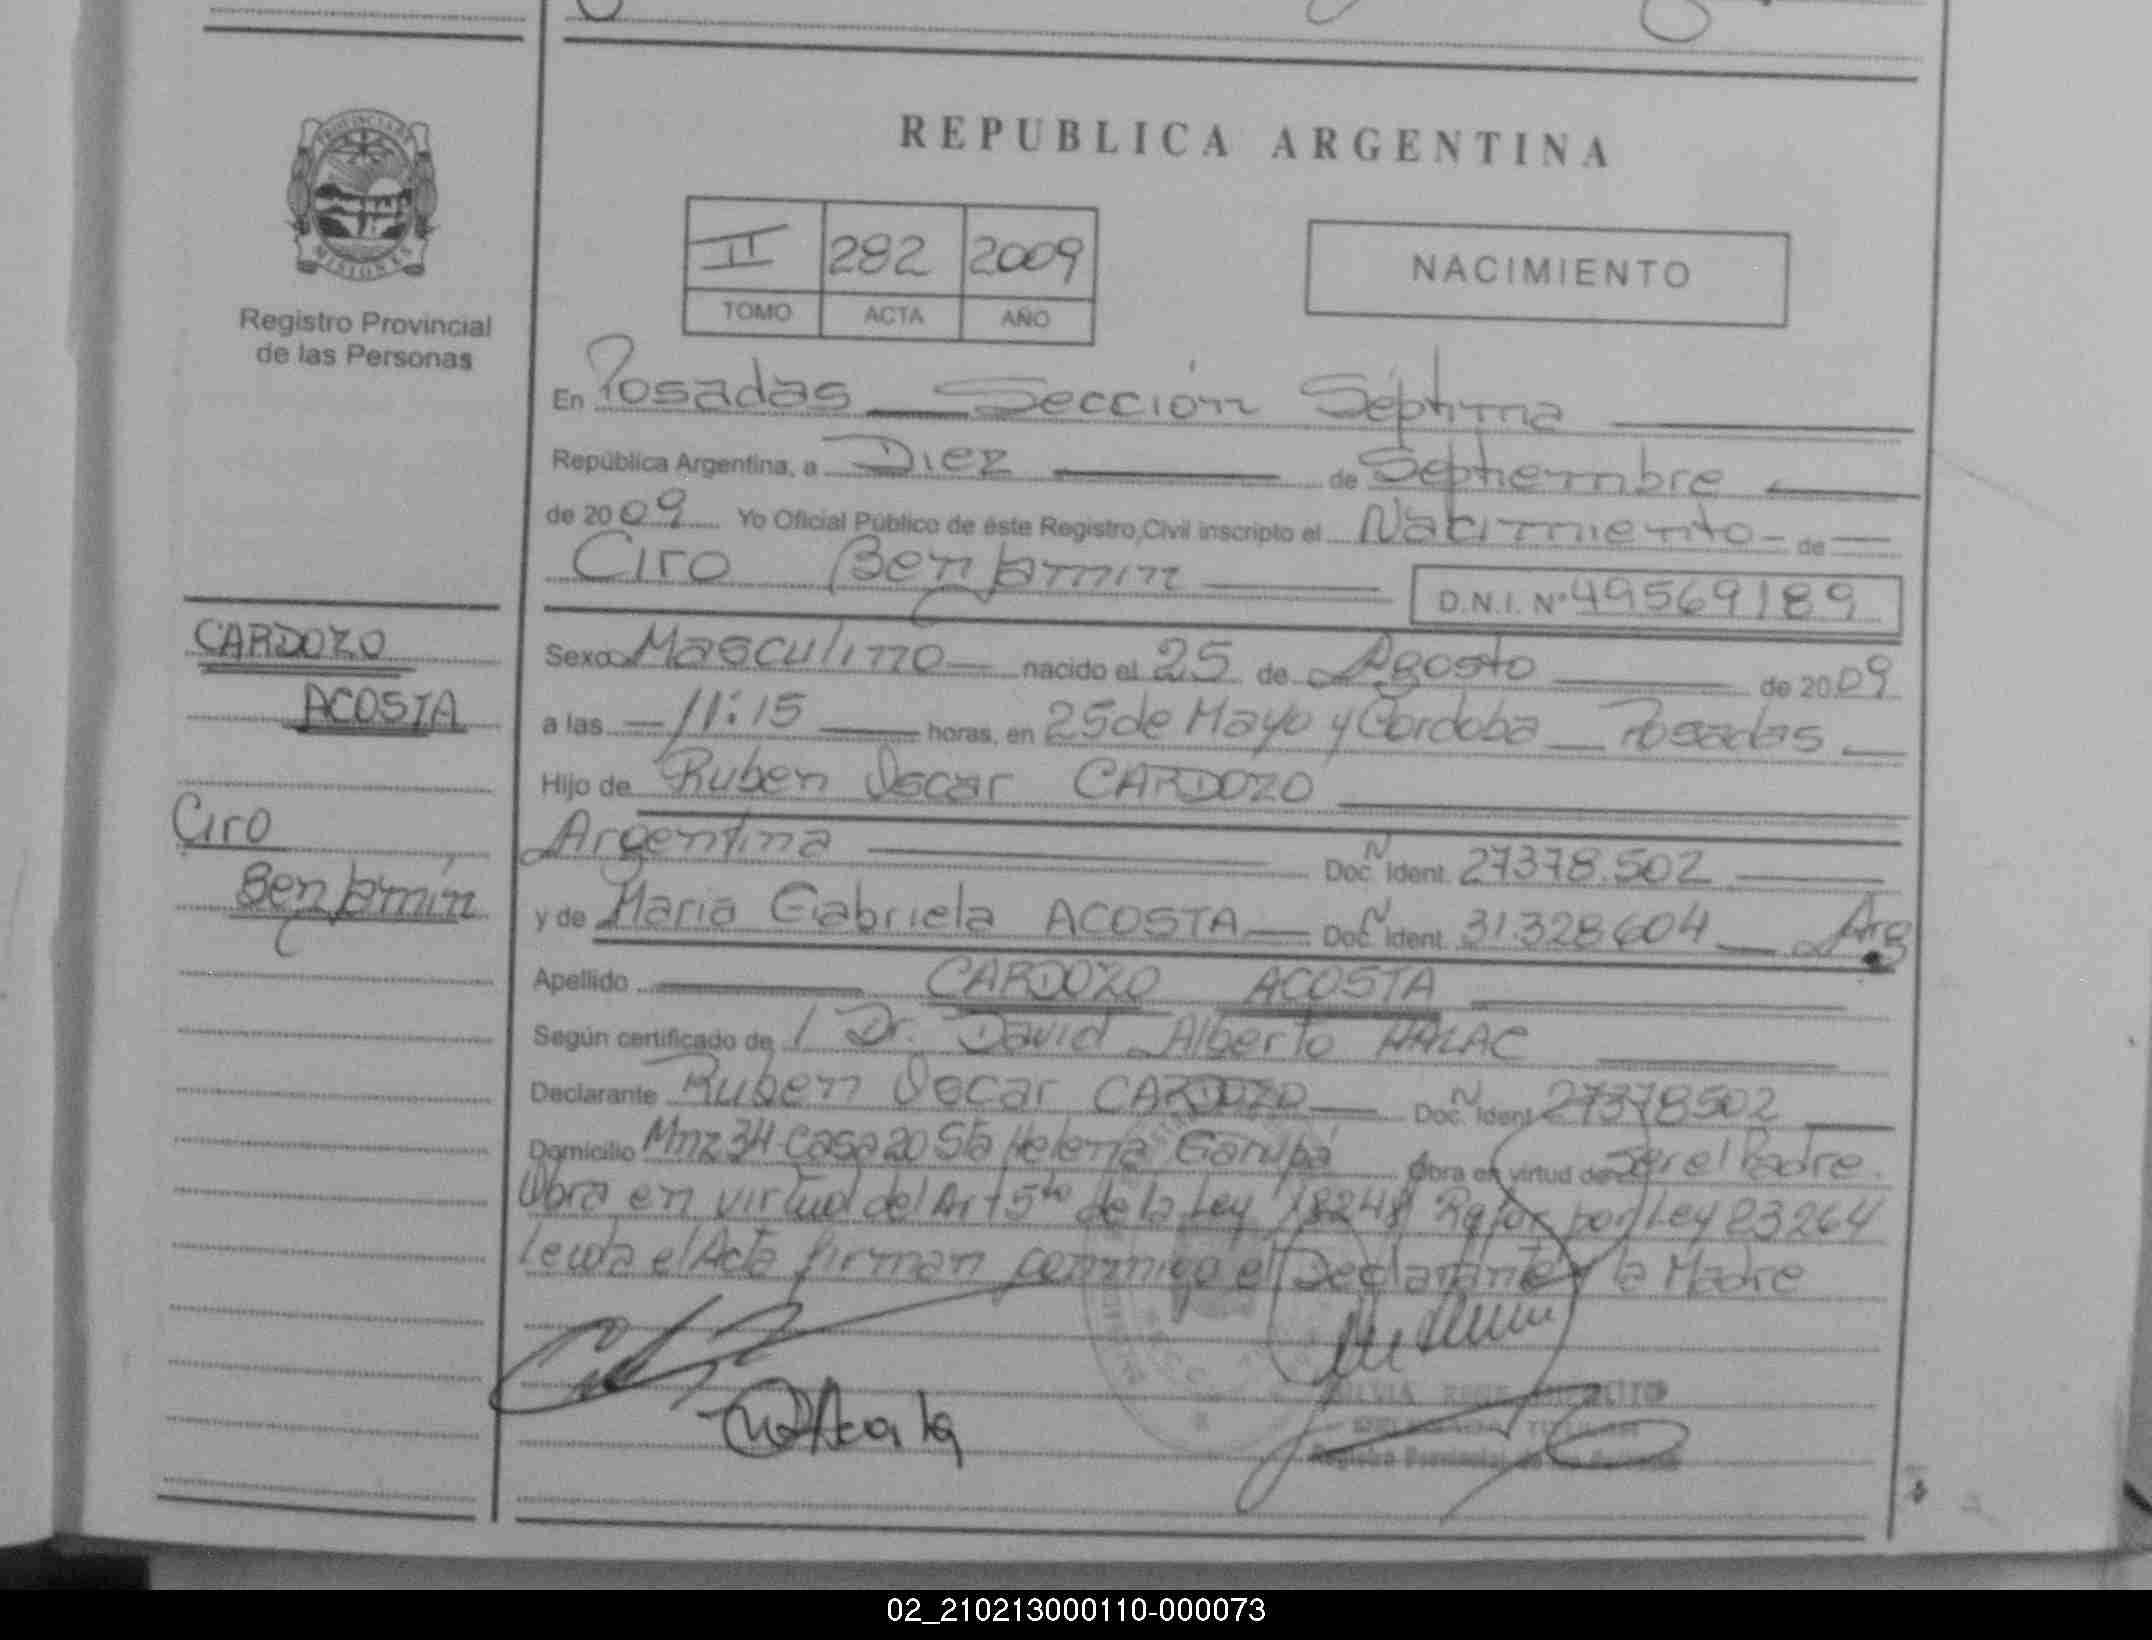 PROVINCIA DE
MISIONES
Registro Provincial
de las Personas
CARDOZO
ACOSTA
Ciro
Benjamín
REPUBLICA ARGENTINA
II 282 2009
TOMO ACTA AÑO
NACIMIENTO
En Posadas Sección Séptima
República Argentina, a Diez de Septiembre
de 2009 Yo Oficial Público de éste Registro Civil inscripto el Nacimiento de
Ciro Benjamin D.N.I. Nº 49569189
Sexo Masculino nacido el 25 de Agosto de 2009
a las 11:15 horas, en 25 de Mayo y Cordoba Posadas
Hijo de Ruben Oscar CARDOZO
Argentina Doc. Ident. 27378.502
y de Maria Gabriela ACOSTA Doc. Ident. 31.328.604 Arg
Apellido CARDOZO ACOSTA
Según certificado de Dr. David Alberto HALAC
Declarante Ruben Oscar CARDOZO Doc. Ident 27378502
Domicilio Mnz 34 Casa 20 Sta Helena Garupá Obra en virtud de Ser el Padre.
Obra en virtud del Art 5to de la Ley 18248 Refor por Ley 23264
Leida el Acta firman conmigo el Declarante y la Madre
Acosta
TITULAR
Registro Provincial de las Personas
02_210213000110-000073